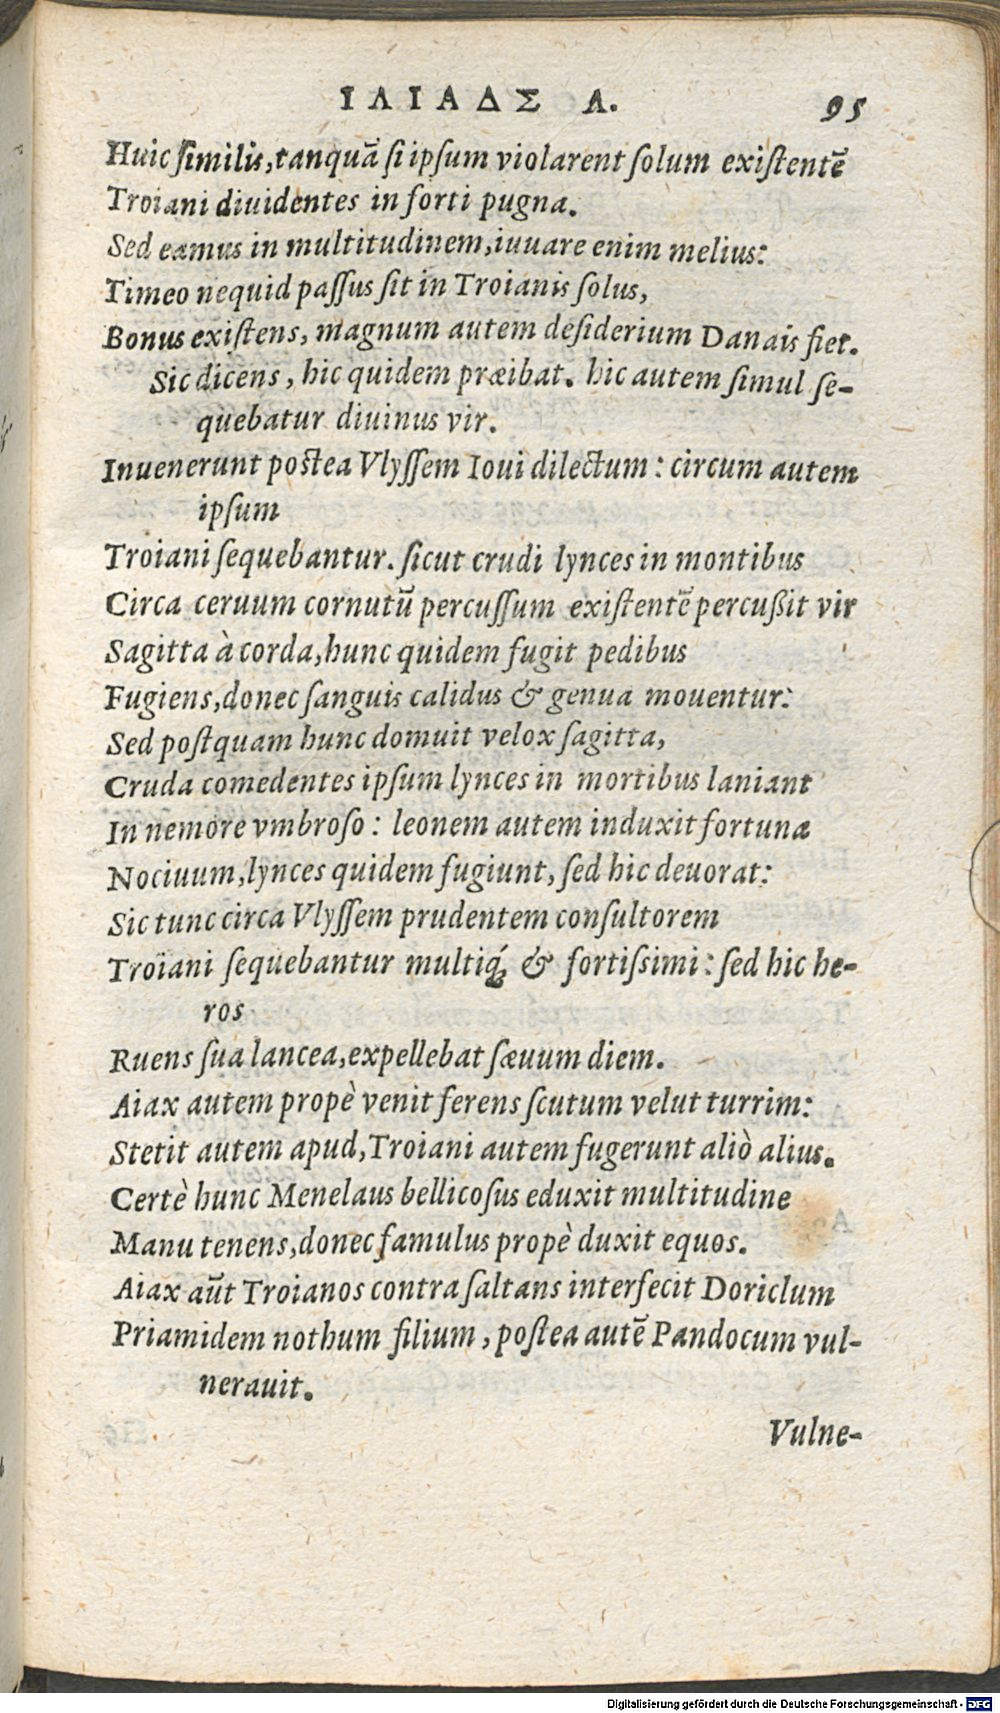 ΙΛΙΑΔΣ Λ. 95
Huic ſimilis,tanquā ſi ipſum violarent ſolum exiſtentē
Troiani diuidentes in forti pugna.
Sed eamus in multitudinem,iuuare enim melius:
Timeo nequid paſſus ſit in Troianis ſolus,
Bonus exiſtens, magnum autem deſiderium Danais fiet.
Sic dicens, hic quidem præibat. hic autem ſimul ſe-
quebatur diuinus vir.
Inuenerunt poſtea Vlyſſem Ioui dilectum: circum autem
ipſum
Troiani ſequebantur. ſicut crudi lynces in montibus
Circa ceruum cornutū percuſſum exiſtentē percußit vir
Sagitta à corda,hunc quidem fugit pedibus
Fugiens,donec ſanguis calidus & genua mouentur:
Sed poſtquam hunc domuit velox ſagitta,
Cruda comedentes ipſum lynces in mortibus laniant
In nemore vmbroſo: leonem autem induxit fortuna
Nociuum,lynces quidem fugiunt, ſed hic deuorat:
Sic tunc circa Vlyſſem prudentem conſultorem
Troiani ſequebantur multiq́; & fortiſsimi: ſed hic he-
ros
Ruens ſua lancea,expellebat ſæuum diem.
Aiax autem propè venit ferens ſcutum velut turrim:
Stetit autem apud,Troiani autem fugerunt aliò alius.
Certè hunc Menelaus bellicoſus eduxit multitudine
Manu tenens,donec famulus propè duxit equos.
Aiax aūt Troianos contra ſaltans interfecit Doriclum
Priamidem nothum filium, poſtea autē Pandocum vul-
nerauit.
Vulne-
Digitalisierung gefördert durch die Deutsche Forschungsgemeinschaft - DFG